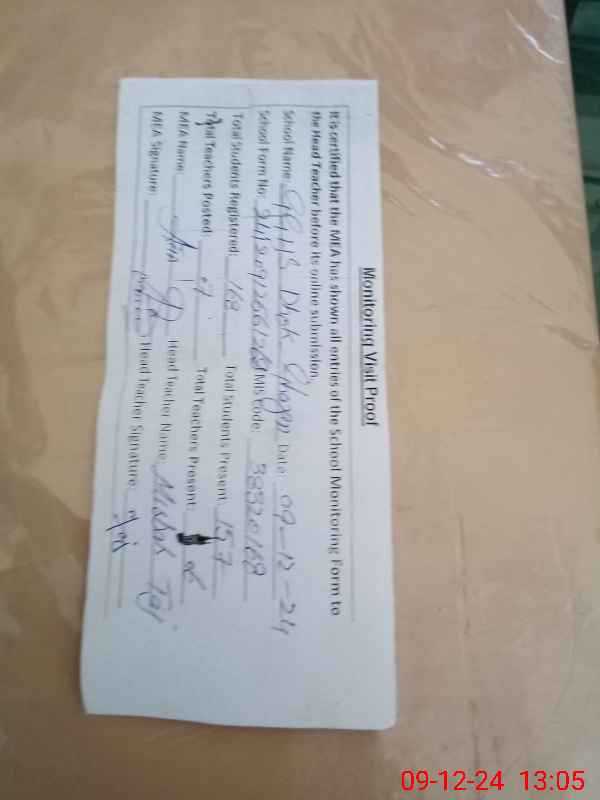 Monitoring Visit Proof
It is certified that the MEA has shown all entries of the School Monitoring Form to
the Head Teacher before its online submission.
School Name: GGHS Dhok Date: 09-12-24
School Form No: MIS Code: 38320168
Total Students Registered: 168 Total Students Present: 157
Total Teachers Posted: Total Teachers Present: 06
MEA Name: Head Teacher Name: Misbah Taj
MEA Signature: Head Teacher Signature:
09-12-24 13:05